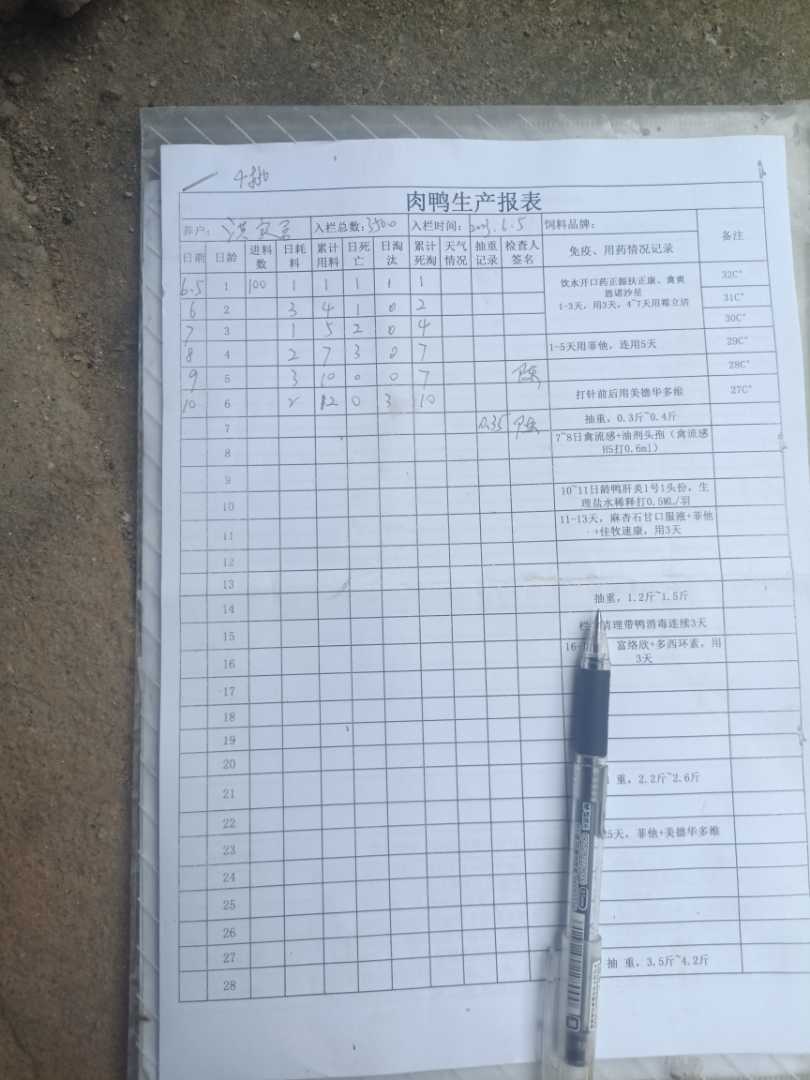 肉鸭生产报表
养户: 入栏总数:3500 入栏时间: 6.5 饲料品牌: 备注
日期 日龄 进料数 日耗料 累计用料 日死亡 日淘汰 累计死淘 天气情况 抽重记录 检查人签名 免疫、用药情况记录
6.5 1 100 1 1 1 1 1 饮水开口药正源扶正康、禽爽 32C°
恩诺沙星
6 2 3 4 1 0 2 1-3天,用3天,4~7天用霉立清 31C°
7 3 1 5 2 0 4 30C°
8 4 2 7 3 0 7 1-5天用菲他,连用5天 29C°
9 5 3 10 0 0 7 28C°
10 6 2 12 0 3 10 打针前后用美德华多维 27C°
7 0.35 抽重,0.3斤~0.4斤
8 7~8日禽流感+油剂头孢(禽流感
H5打0.6ml)
9
10 10~11日龄鸭肝炎1号1头份,生
理盐水稀释打0.5ML/羽
11 11-13天,麻杏石甘口服液+菲他
+佳牧速康,用3天
12
13
14 抽重,1.2斤~1.5斤
15 清理带鸭消毒连续3天
16 16- 富络欣+多西环素,用
3天
17
18
19
20
21 重,2.2斤~2.6斤
22
23 25天,菲他+美德华多维
24
25
26
27 抽 重,3.5斤~4.2斤
28